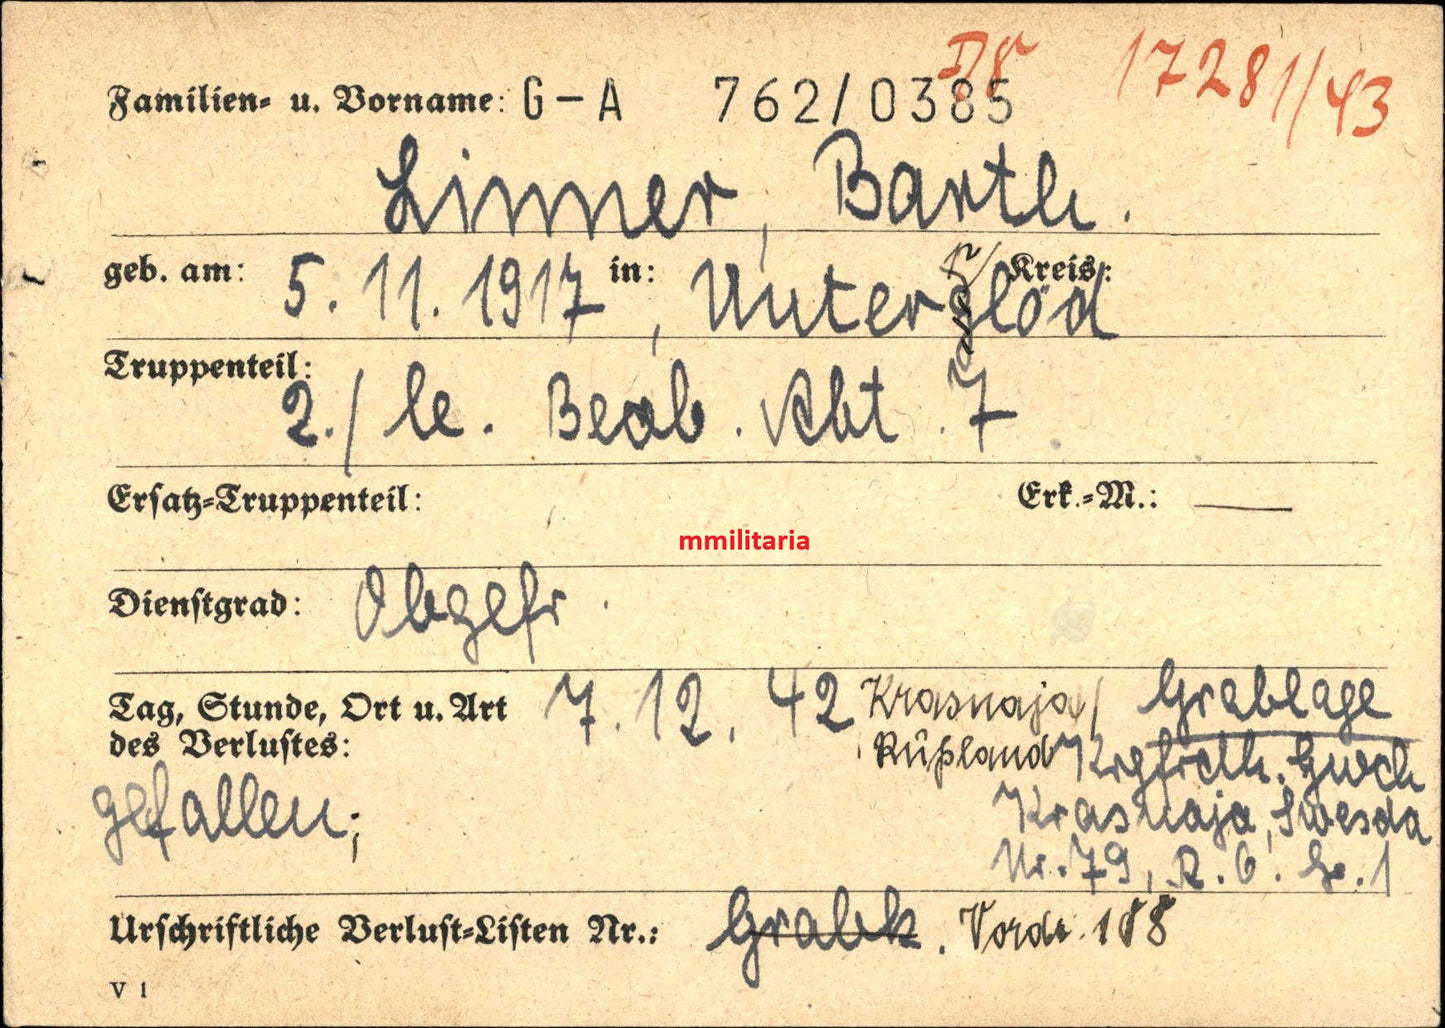 D8 17281/43
Familien- u. Vorname: G-A 762/0385
Linner, Barth.
geb. am: 5.11.1917 in: Unterglöd Kreis:
Truppenteil:
2./ le. Beob. Abt. 7
Ersatz-Truppenteil: Erk.-M.: —
mmilitaria
Dienstgrad: Obgefr.
Tag, Stunde, Ort u. Art 7.12.42 Krasnaja/ Grablage
des Verlustes: Rußland Krgfrdh.
gefallen; Krasnaja, Swesda
Nr. 79, R. 6. Gr. 1
Urschriftliche Verlust-Listen Nr.: Grabk. Vordr. 188
V 1